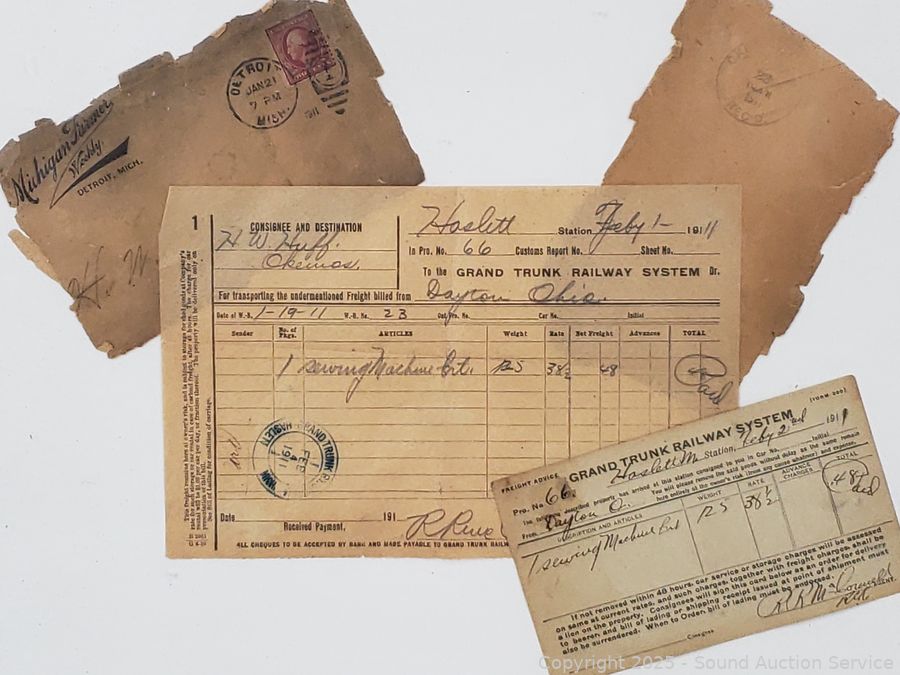 Michigan Farmer
Weekly.
DETROIT, MICH.
DETROIT
JAN 21
7 PM
MICH.
1911
H. W.
1
CONSIGNEE AND DESTINATION
H. W. Huff.
Okemos.
Haslett Station, Feby 1- 1911
In Pro. No. 66 Customs Report No. Sheet No.
To the GRAND TRUNK RAILWAY SYSTEM Dr.
For transporting the undermentioned Freight billed from Dayton Ohio.
Date of W.-B. 1-19-11 W.-B. No. 23 Car No. Initial
Sender No. of Pkgs. ARTICLES Weight Rate Net Freight Advances TOTAL
1 sewing Machine Crt. 125 38½ 48 Paid
GRAND TRUNK
HASLETT
FEB
1
1911
MICH.
Date 191
Received Payment,
ALL CHEQUES TO BE ACCEPTED BY BANK AND MADE PAYABLE TO GRAND TRUNK
(FORM 200)
FREIGHT ADVICE GRAND TRUNK RAILWAY SYSTEM
Haslett M Station, Feby 2nd 1911
Pro. No 66
The following described property has arrived at this station consigned to you in Car No. Initial
You will please remove the said goods without delay as the same remain
here entirely at the owner's risk (from any cause whatever) and expense.
From Dayton O.
DESCRIPTION AND ARTICLES WEIGHT RATE ADVANCE CHARGES TOTAL
1 sewing Machine Crt 125 38½ .48 Paid
If not removed within 48 hours, car service or storage charges will be assessed
on same at current rates, and such charges, together with freight charges, shall be
a lien on the property. Consignees will sign this card below as an order for delivery
to bearer, and bill of lading or shipping receipt issued at point of shipment must
also be surrendered. When to Order, bill of lading must be endorsed.
AGENT.
Consignee
Copyright 2025 - Sound Auction Service